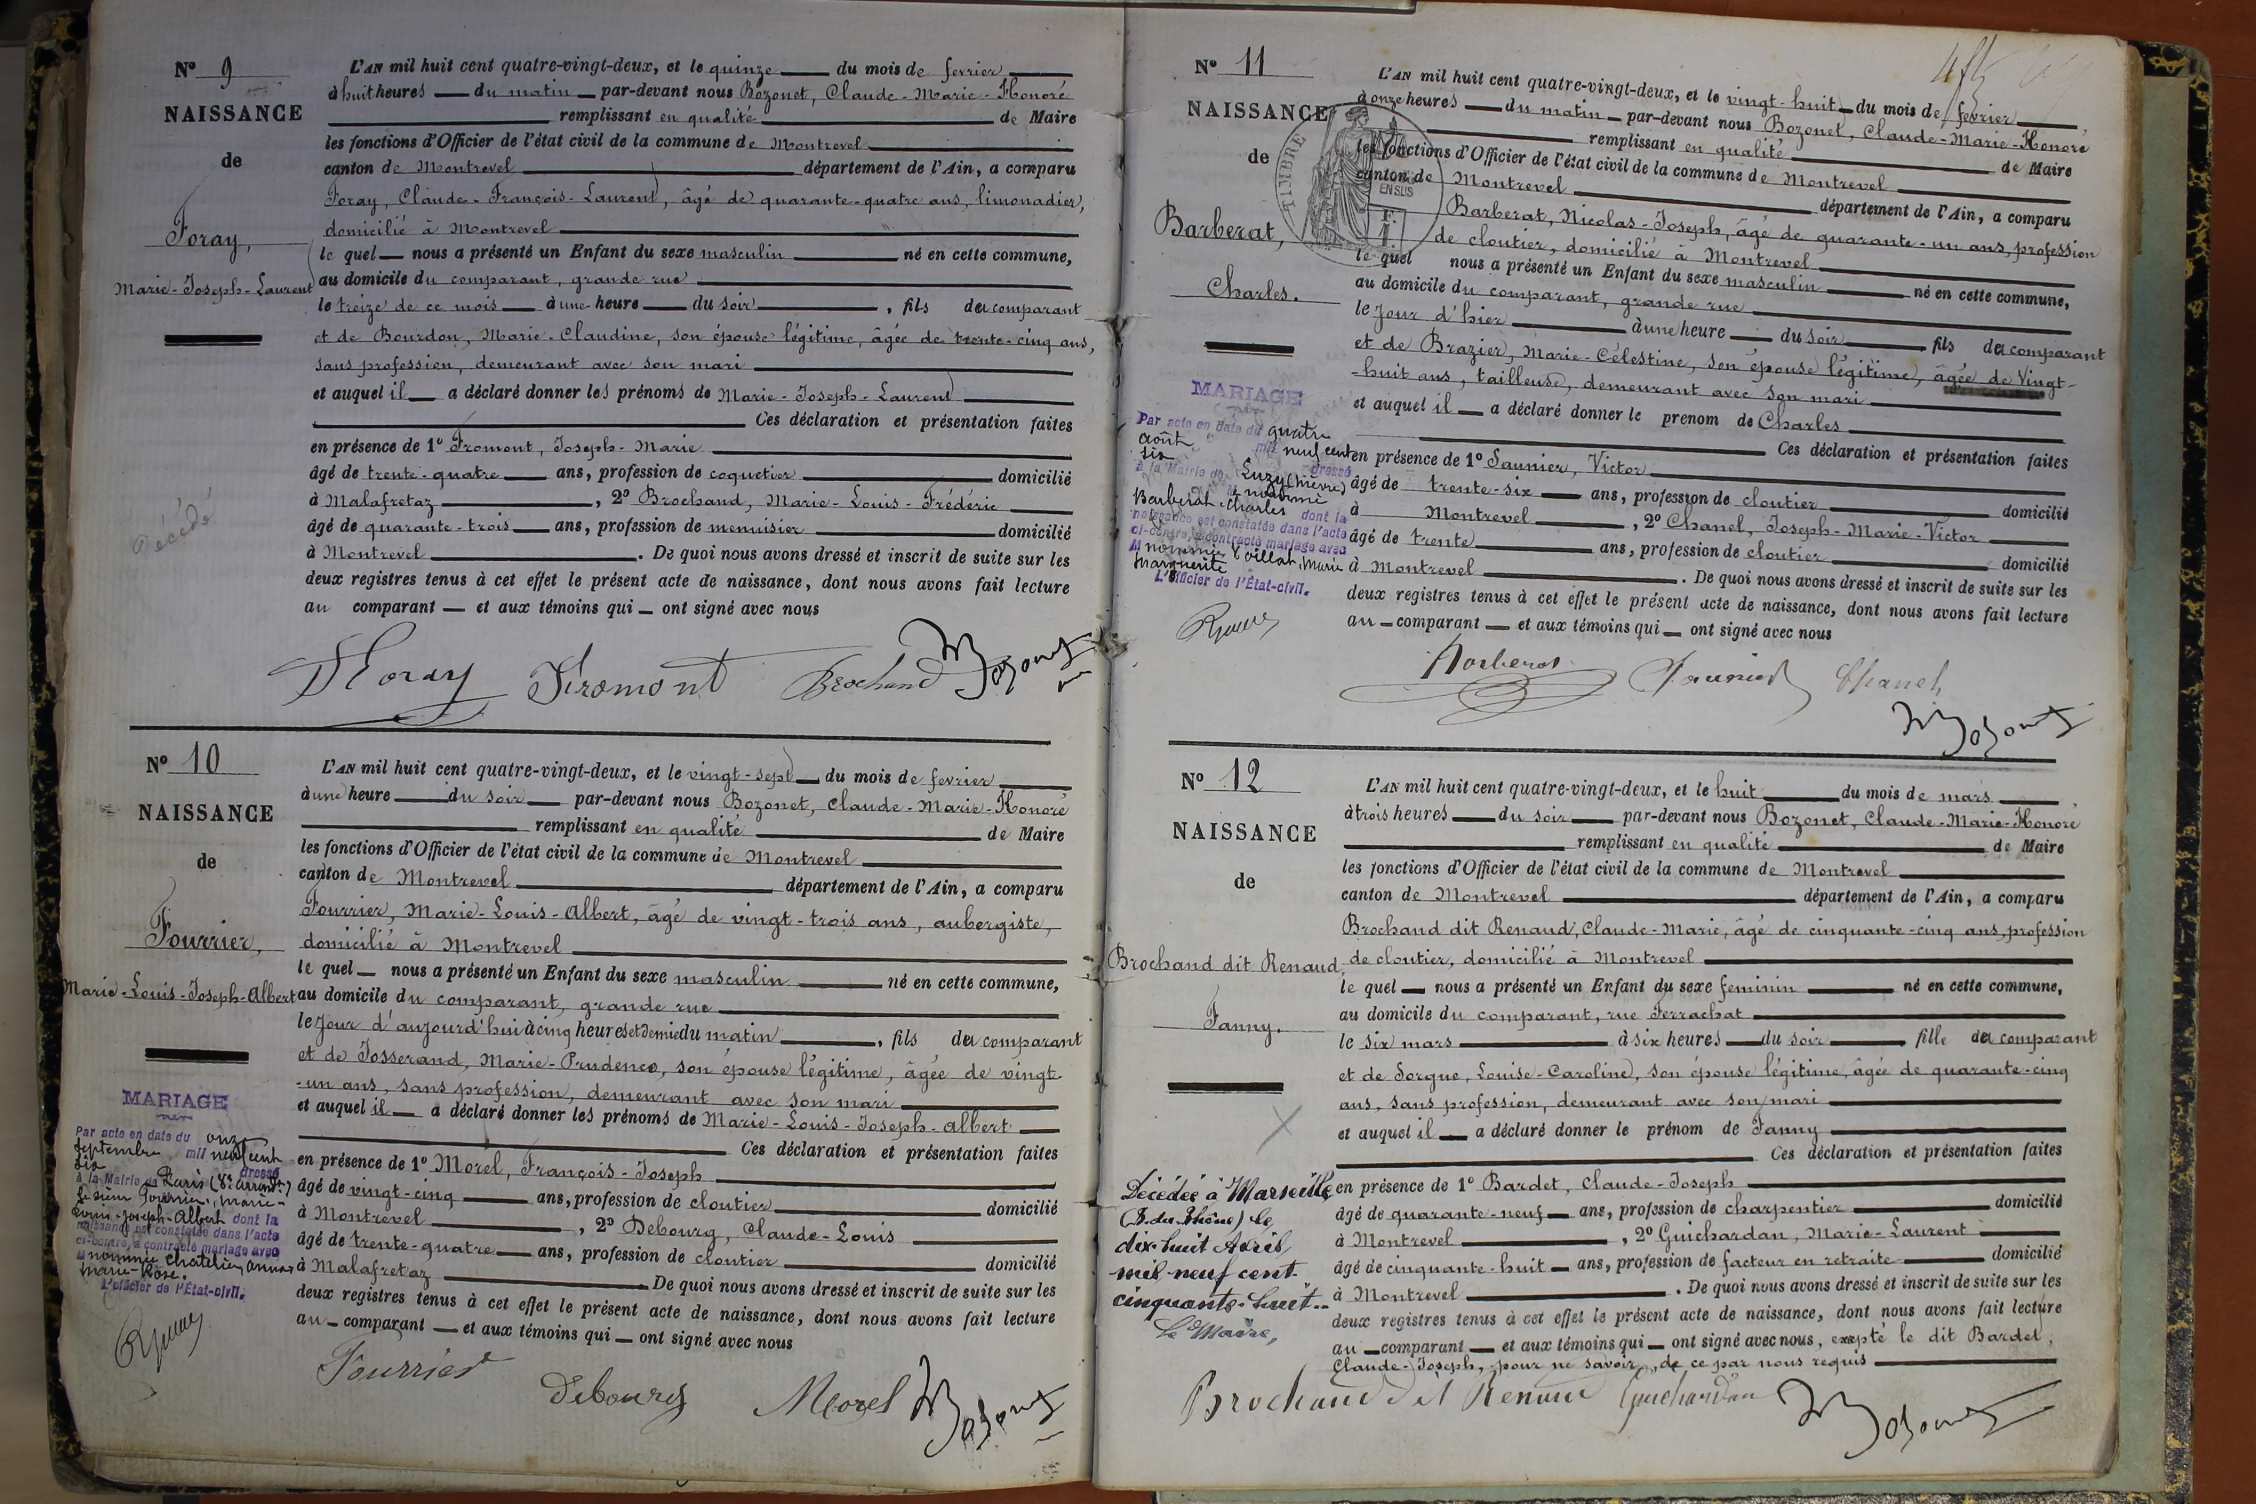 N° 9
NAISSANCE
de
Foray,
Marie-Joseph-Laurent
Décédé
L'AN mil huit cent quatre-vingt-deux, et le quinze du mois de fevrier
à huit heures du matin par-devant nous Bozonet, Claude-Marie-Honoré
remplissant en qualité de Maire
les fonctions d'Officier de l'état civil de la commune de Montrevel
canton de Montrevel département de l'Ain, a comparu
Foray, Claude-François-Laurent, âgé de quarante-quatre ans, limonadier,
domicilié à Montrevel
le quel nous a présenté un Enfant du sexe masculin né en cette commune,
au domicile du comparant, grande rue
le treize de ce mois à une heure du soir, fils du comparant
et de Bourdon, Marie-Claudine, son épouse légitime, âgée de trente-cinq ans,
sans profession, demeurant avec son mari
et auquel il a déclaré donner les prénoms de Marie-Joseph-Laurent
Ces déclaration et présentation faites
en présence de 1° Fromont, Joseph-Marie
âgé de trente-quatre ans, profession de coquetier domicilié
à Malafretaz, 2° Brochand, Marie-Louis-Frédéric
âgé de quarante-trois ans, profession de menuisier domicilié
à Montrevel. De quoi nous avons dressé et inscrit de suite sur les
deux registres tenus à cet effet le présent acte de naissance, dont nous avons fait lecture
au comparant et aux témoins qui ont signé avec nous
Foray Fromont Brochand Bozonet
N° 10
NAISSANCE
de
Fourrier,
Marie-Louis-Joseph-Albert
MARIAGE
Par acte en date du onze
septembre mil neuf cent
six dressé
à la Mairie de Paris (8e arrondt)
le sieur Fourrier, Marie-
Louis-Joseph-Albert dont la
naissance est constatée dans l'acte
ci-contre, a contracté mariage avec
la nommée Chatelier, Anna
Marie-Rose.
L'officier de l'État-civil.
L'AN mil huit cent quatre-vingt-deux, et le vingt-sept du mois de fevrier
à une heure du soir par-devant nous Bozonet, Claude-Marie-Honoré
remplissant en qualité de Maire
les fonctions d'Officier de l'état civil de la commune de Montrevel
canton de Montrevel département de l'Ain, a comparu
Fourrier, Marie-Louis-Albert, âgé de vingt-trois ans, aubergiste,
domicilié à Montrevel
le quel nous a présenté un Enfant du sexe masculin né en cette commune,
au domicile du comparant, grande rue
le jour d'aujourd'hui à cinq heures et demie du matin, fils du comparant
et de Josserand, Marie-Prudence, son épouse légitime, âgée de vingt-
-un ans, sans profession, demeurant avec son mari
et auquel il a déclaré donner les prénoms de Marie-Louis-Joseph-Albert
Ces déclaration et présentation faites
en présence de 1° Morel, François-Joseph
âgé de vingt-cinq ans, profession de cloutier domicilié
à Montrevel, 2° Debourg, Claude-Louis
âgé de trente-quatre ans, profession de cloutier domicilié
à Malafretaz De quoi nous avons dressé et inscrit de suite sur les
deux registres tenus à cet effet le présent acte de naissance, dont nous avons fait lecture
au comparant et aux témoins qui ont signé avec nous
Fourrier Debourg Morel Bozonet
N° 11
NAISSANCE
de
Barberat,
Charles.
TIMBRE
MARIAGE
Par acte en date du quatre
août mil neuf cent
six dressé
à la Mairie de Luzy (Nièvre)
le nommé
Barberat Charles dont la
naissance est constatée dans l'acte
ci-contre, a contracté mariage avec
la nommée Marie
Marguerite
L'officier de l'État-civil.
L'AN mil huit cent quatre-vingt-deux, et le vingt-huit du mois de fevrier
à onze heures du matin par-devant nous Bozonet, Claude-Marie-Honoré
remplissant en qualité de Maire
les fonctions d'Officier de l'état civil de la commune de Montrevel
canton de Montrevel département de l'Ain, a comparu
Barberat, Nicolas-Joseph, âgé de quarante-un ans, profession
de cloutier, domicilié à Montrevel
le quel nous a présenté un Enfant du sexe masculin né en cette commune,
au domicile du comparant, grande rue
le jour d'hier à une heure du soir fils du comparant
et de Brazier, Marie-Célestine, son épouse légitime, âgée de vingt-
-huit ans, tailleuse, demeurant avec son mari
et auquel il a déclaré donner le prenom de Charles
Ces déclaration et présentation faites
en présence de 1° Saunier, Victor
âgé de trente-six ans, profession de cloutier domicilié
à Montrevel, 2° Chanel, Joseph-Marie-Victor
âgé de trente ans, profession de cloutier domicilié
à Montrevel. De quoi nous avons dressé et inscrit de suite sur les
deux registres tenus à cet effet le présent acte de naissance, dont nous avons fait lecture
au comparant et aux témoins qui ont signé avec nous
Barberat Saunier Chanel
Bozonet
N° 12
NAISSANCE
de
Brochand dit Renaud,
Fanny.
Décédée à Marseille
(B. du Rhône) le
dix-huit Avril
mil-neuf cent-
cinquante-huit..
Le Maire,
L'AN mil huit cent quatre-vingt-deux, et le huit du mois de mars
à trois heures du soir par-devant nous Bozonet, Claude-Marie-Honoré
remplissant en qualité de Maire
les fonctions d'Officier de l'état civil de la commune de Montrevel
canton de Montrevel département de l'Ain, a comparu
Brochand dit Renaud, Claude-Marie, âgé de cinquante-cinq ans, profession
de cloutier, domicilié à Montrevel
le quel nous a présenté un Enfant du sexe feminin né en cette commune,
au domicile du comparant, rue Ferrachat
le six mars à six heures du soir fille du comparant
et de Sorgue, Louise-Caroline, son épouse légitime, âgée de quarante-cinq
ans, sans profession, demeurant avec son mari
et auquel il a déclaré donner le prénom de Fanny
Ces déclaration et présentation faites
en présence de 1° Bardet, Claude-Joseph
âgé de quarante-neuf ans, profession de charpentier domicilié
à Montrevel, 2° Guichardan, Marie-Laurent
âgé de cinquante-huit ans, profession de facteur en retraite domicilié
à Montrevel. De quoi nous avons dressé et inscrit de suite sur les
deux registres tenus à cet effet le présent acte de naissance, dont nous avons fait lecture
au comparant et aux témoins qui ont signé avec nous, exepté le dit Bardet,
Claude-Joseph, pour ne savoir, de ce par nous requis
Brochand dit Renaud Guichardan Bozonet